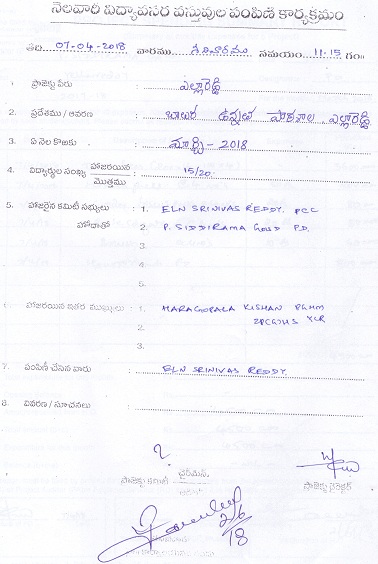 నెలవారి విద్యావసర వస్తువుల పంపిణి కార్యక్రమం
తేది 07-04-2018 వారము శనివారము సమయం 11-15 గం॥
1. ప్రాజెక్టు పేరు : ఎల్లారెడ్డి
2. ప్రదేశము / ఆవరణ : బాలుర ఉన్నత పాఠశాల ఎల్లారెడ్డి
3. ఏ నెల కొఱకు : మార్చి - 2018
4. విద్యార్థుల సంఖ్య హాజరయిన / మొత్తము : 15/20
5. హాజరైన కమిటీ సభ్యులు : 1. ELN SRINIVAS REDDY. PCC
హోదాతో 2. P. SIDDIRAMA GOUD P.D.
3.
4.
5.
6. హాజరయిన ఇతర ముఖ్యులు : 1. HARAGOPALA KISHAN PGHM
2. ZPGHS YLR
3.
7. పంపిణీ చేసిన వారు : ELN SRINIVAS REDDY
8. వివరణ / సూచనలు :
ఛైర్మెన్,
ప్రాజెక్టు కమిటీ
ప్రాజెక్టు డైరెక్టర్
2/6/18